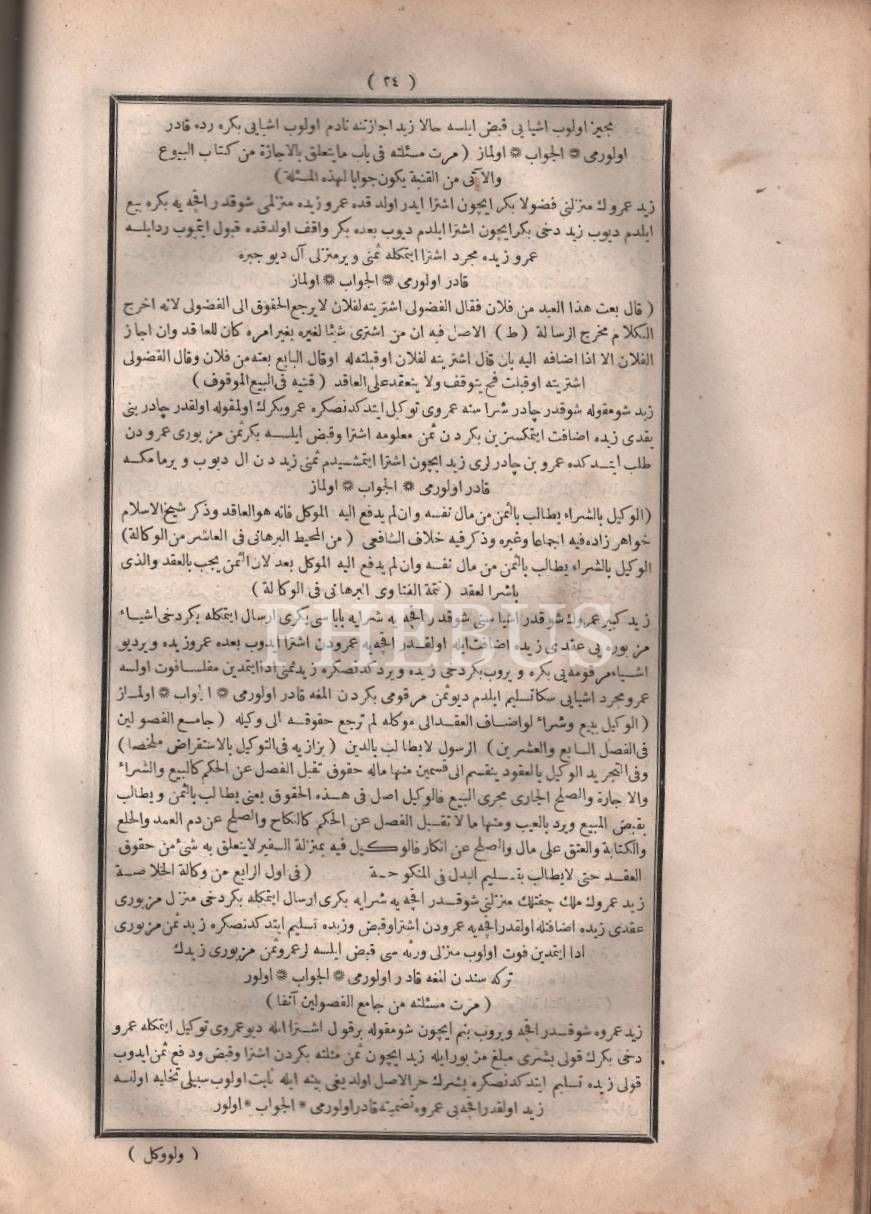 ( ٢٤ )
مجيز اولوب اشيايى قبض ايلسه حالا زيد اجازتنه نادم اولوب اشيايى بكره رده قادر
اولورمى * الجواب * اولماز ( مرت مسئلته فى باب مايتعلق بالاجازة من كتاب البيوع
والآتى من القنية يكون جوابا لهذه المسئلة )
زيد عمروك منزلنى فضولا بكر ايچون اشترا ايدر اولدقده عمرو زيده منزلمى شوقدر اقچه يه بكره بيع
ايلدم ديوب زيد دخى بكر ايچون اشترا ايلدم ديوب بعده بكر واقف اولدقده قبول ايتميوب رد ايلسه
عمرو زيده مجرد اشترا ايتمكله ثمنى وير منزلى آل ديو جبره
قادر اولورمى * الجواب * اولماز
( قال بعت هذا العبد من فلان فقال الفضولى اشتريته لفلان لا يرجع الحقوق الى الفضولى لانه اخرج
الكلام مخرج الرسالة ( ط ) الاصل فيه ان من اشترى شيئا لغيره بغير امره كان للعاقد وان اجاز
الفلان الا اذا اضافه اليه بان قال اشتريته لفلان اوقبلته له اوقال البايع بعته من فلان وقال الفضولى
اشتريته اوقبلت فح يتوقف ولا ينعقد على العاقد ( قنيه فى البيع الموقوف )
زيد شومقوله شوقدر چادر شراسنه عمروى توكيل ايتدكدنصكره عمرو بكرك اولمقوله اولقدر چادرينى
يقدى زيده اضافت ايتمكسزين بكردن ثمن معلومه اشترا وقبض ايلسه بكر ثمن مزبورى عمرودن
طلب ايتدكده عمرو بن چادرلرى زيد ايچون اشترا ايتمشيدم ثمنى زيددن ال ديوب ويرمامكه
قادر اولورمى * الجواب * اولماز
( الوكيل بالشراء يطالب بالثمن من مال نفسه وان لم يدفع اليه الموكل فانه هو العاقد وذكر شيخ الاسلام
خواهر زاده فيه اجماعا وغيره وذكر فيه خلاف الشافعى ( من المحيط البرهانى فى العاشر من الوكالة )
الوكيل بالشراء يطالب بالثمن من مال نفسه وان لم يدفع اليه الموكل بعد لان الثمن يجب بالعقد والذى
باشر العقد ( تتمة الفتاوى البرهانى فى الوكالة )
زيد كبير عمروك شوقدر اشياسنى شوقدر اقچه يه شرايه باباسى بكرى ارسال ايتمكله بكر دخى اشياء
مزبوره يى عقدى زيده اضافت ايله اولقدر اقچه يه عمرودن اشترا ايدوب بعده عمرو زيده ويرديو
اشياء مرقومه يى بكره ويروب بكر دخى زيده ويردكدنصكره زيد ثمنى ادا ايتمدين مفلسا فوت اولسه
عمرو مجرد اشيايى سكا تسليم ايلدم ديو ثمن مرقومى بكردن المغه قادر اولورمى * الجواب * اولماز
( الوكيل ببيع وشراء لو اضاف العقد الى موكله لم ترجع حقوقه الى وكيله ( جامع الفصولين
فى الفصل السابع والعشرين ) الرسول لا يطالب بالدين ( بزازيه فى التوكيل بالاستقراض ملخصا )
وفى التجريد الوكيل بالعقود ينقسم الى قسمين منها ماله حقوق تقبل الفصل عن الحكم كالبيع والشراء
والاجارة والصلح الجارى مجرى البيع فالوكيل اصل فى هذه الحقوق يعنى يطالب بالثمن ويطالب
بقبض المبيع ويرد بالعيب ومنها ما لا تقبل الفصل عن الحكم كالنكاح والصلح عن دم العمد والخلع
والكتابة والعتق على مال والصلح عن انكار فالوكيل فيه بمنزلة السفير لا يتعلق به شئ من حقوق
العقد حتى لا يطالب بتسليم البدل فى المنكوحة ( فى اول الرابع من وكالة الخلاصة
زيد عمروك ملك چفتلك منزلنى شوقدر اقچه يه شرايه بكرى ارسال ايتمكله بكر دخى منزل مزبورى
عقدى زيده اضافتله اولقدر اقچه يه عمرودن اشترا وقبض وزيده تسليم ايتدكدنصكره زيد ثمن مزبورى
ادا ايتمدين فوت اولوب منزلى ورثه سى قبض ايلسه لر عمرو ثمن مزبورى زيدك
تركه سندن المغه قادر اولورمى * الجواب * اولور
( مرت مسئلته من جامع الفصولين آنفا )
زيد عمروه شوقدر اقچه ويروب بنم ايچون شومقوله بر قول اشترا ايله ديو عمروى توكيل ايتمكله عمرو
دخى بكرك قولى بشرى مبلغ مزبور ايله زيد ايچون ثمن مثلنه بكردن اشترا وقبض ودفع ثمن ايدوب
قولى زيده تسليم ايتدكدنصكره بشرك حر الاصل اولديغى بينه ايله ثابت اولوب سبيلى تخليه اولنسه
زيد اولقدر اقچه يى عمروه تضمينه قادر اولورمى * الجواب * اولور
( ولووكل )
THEBUS